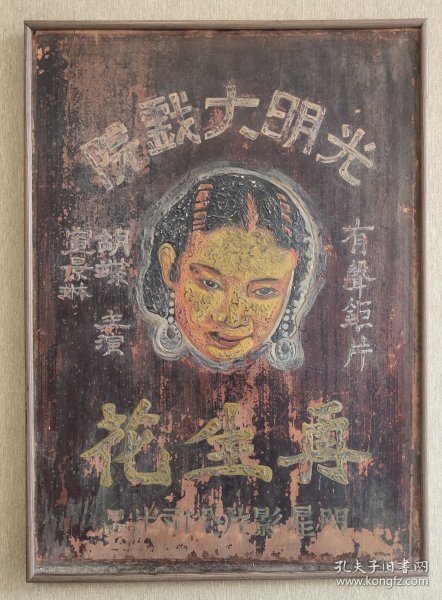 光明大戲院
有聲鉅片
胡蝶 主演
宣景琳
再生花
明星影片公司出品
孔夫子旧书网
www.kongfz.com